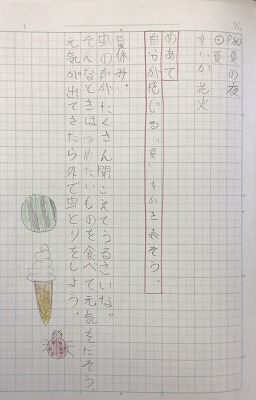 P50 夏の夜
⊙夏
すいか 花火
めあて
自分が感じる「夏」をかき表そう。
・夏休み。
虫の声が、たくさん聞こえてうるさいな。
そんなときはつめたいものを食べて元気をだそう。
元気が出てきたら外で虫とりをしよう。